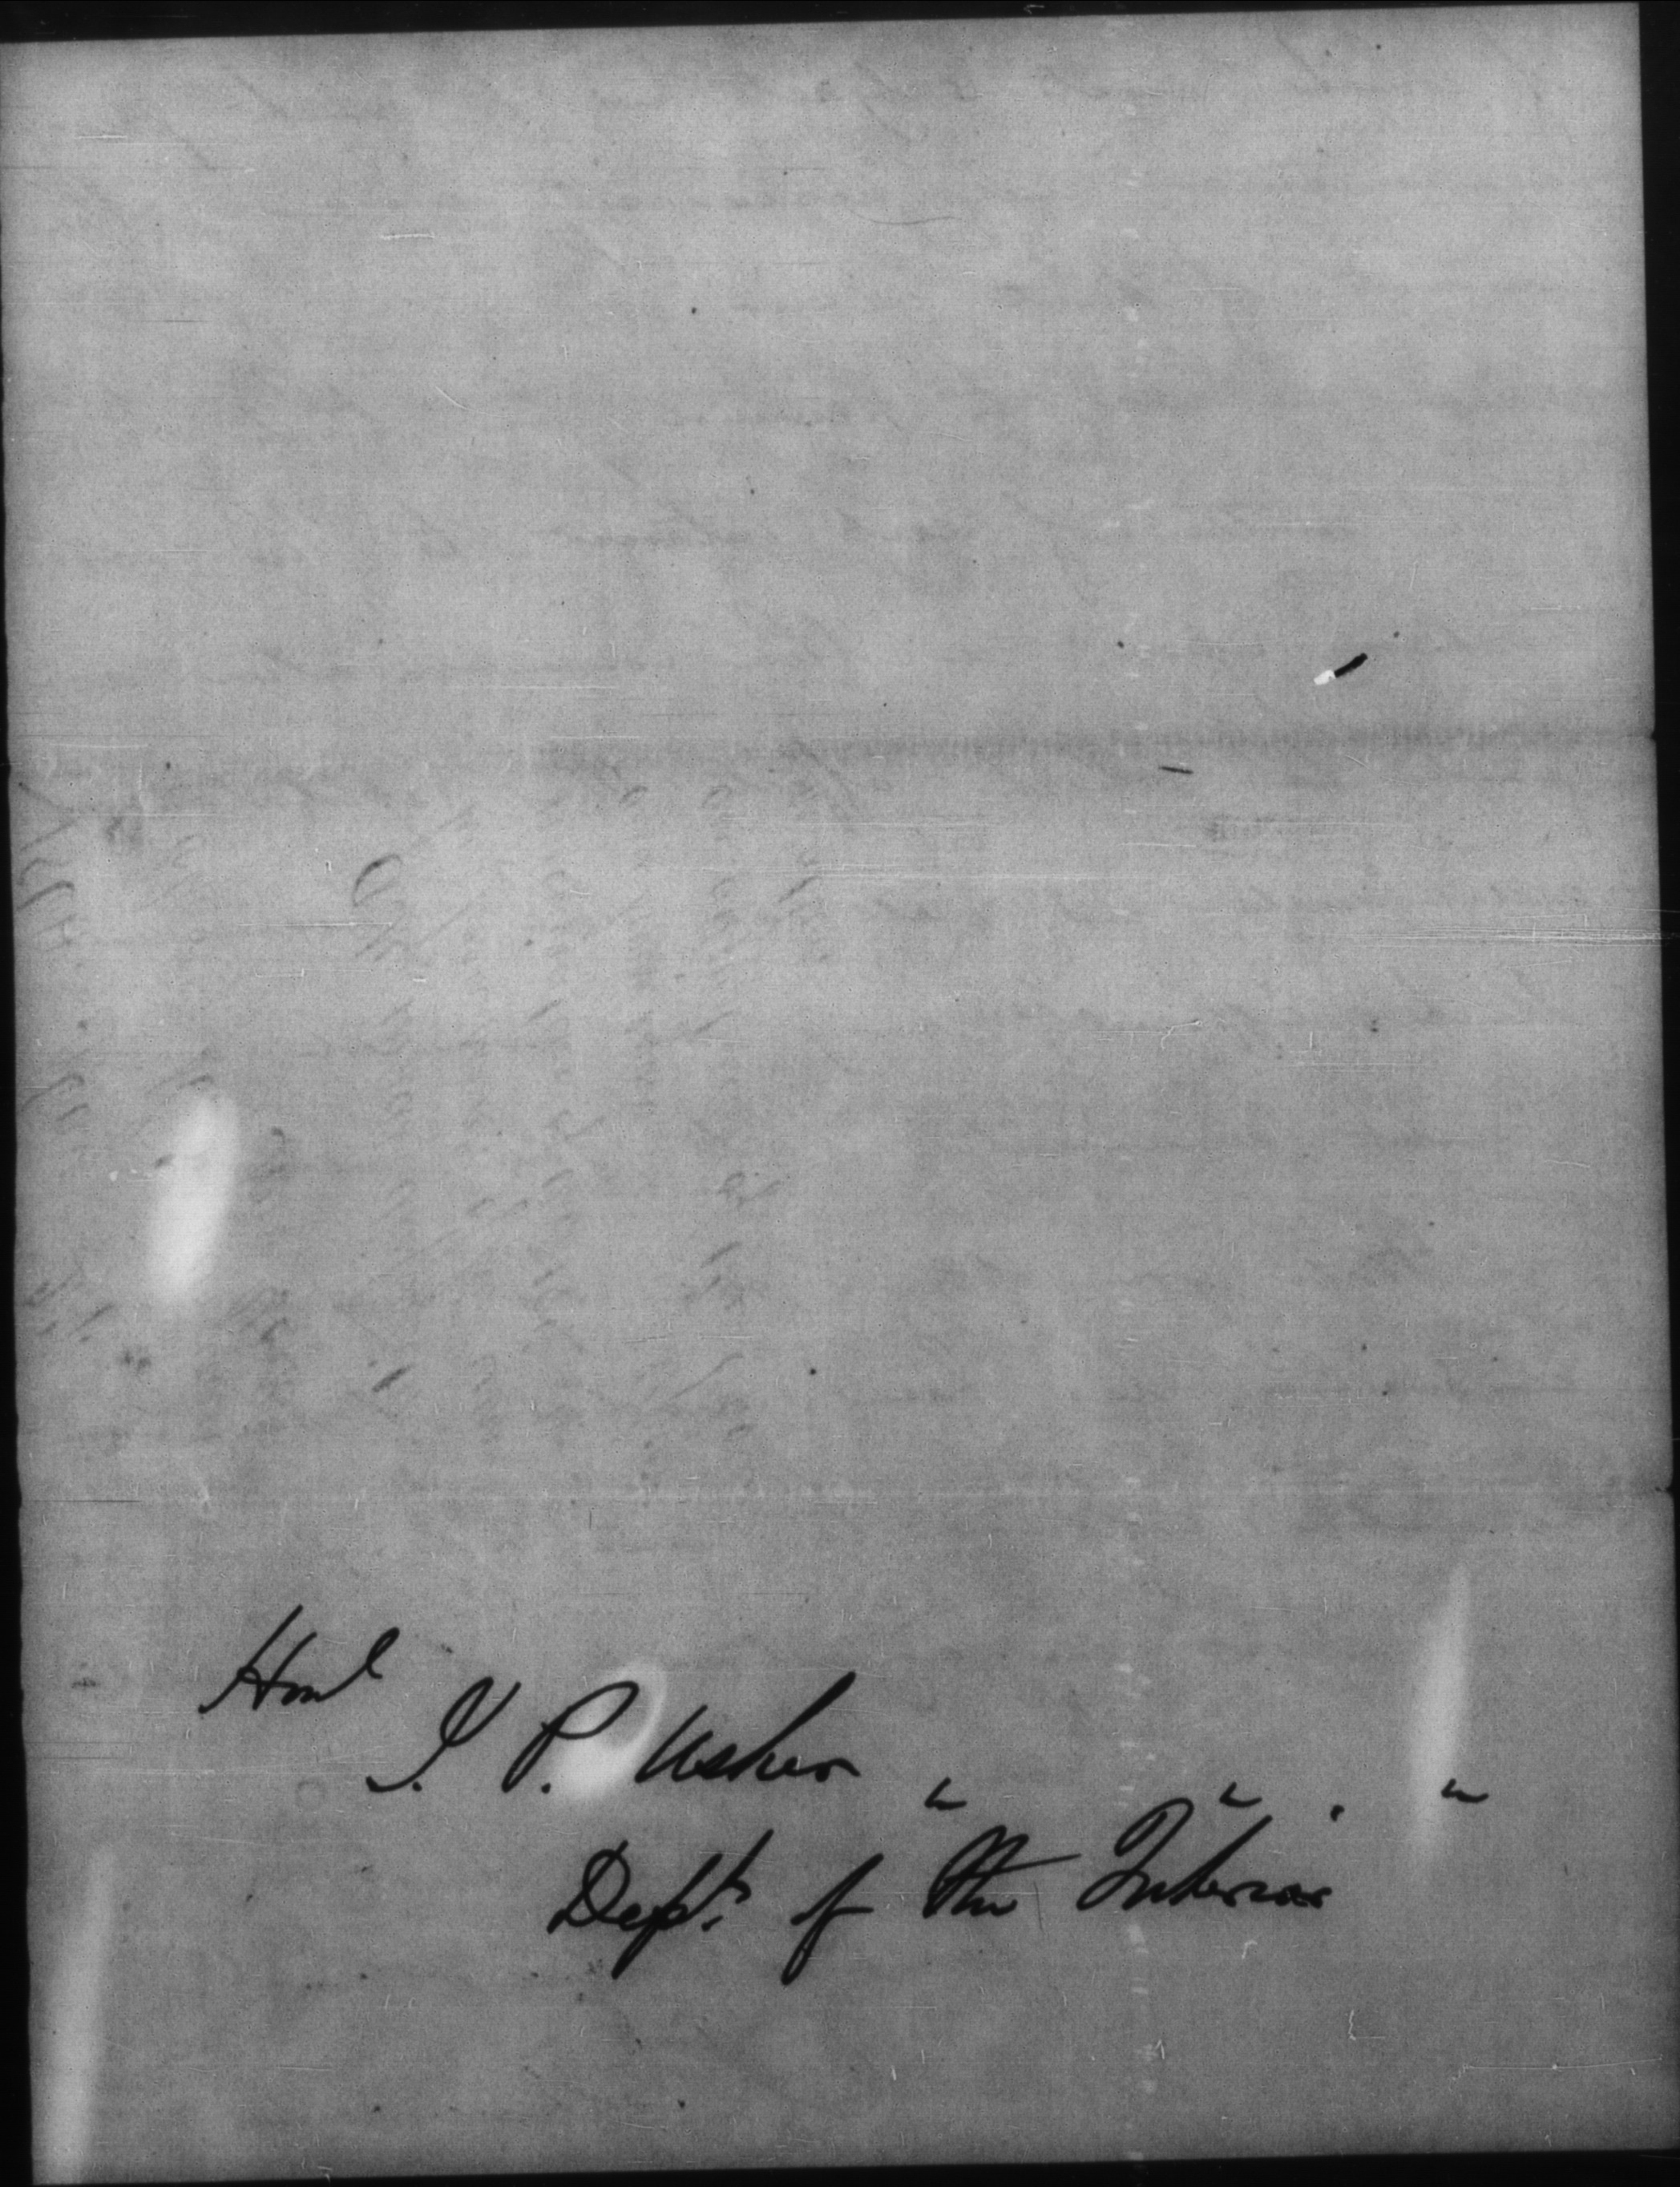 Honl
J. P. Usher " " . "
Dept. of the Interior